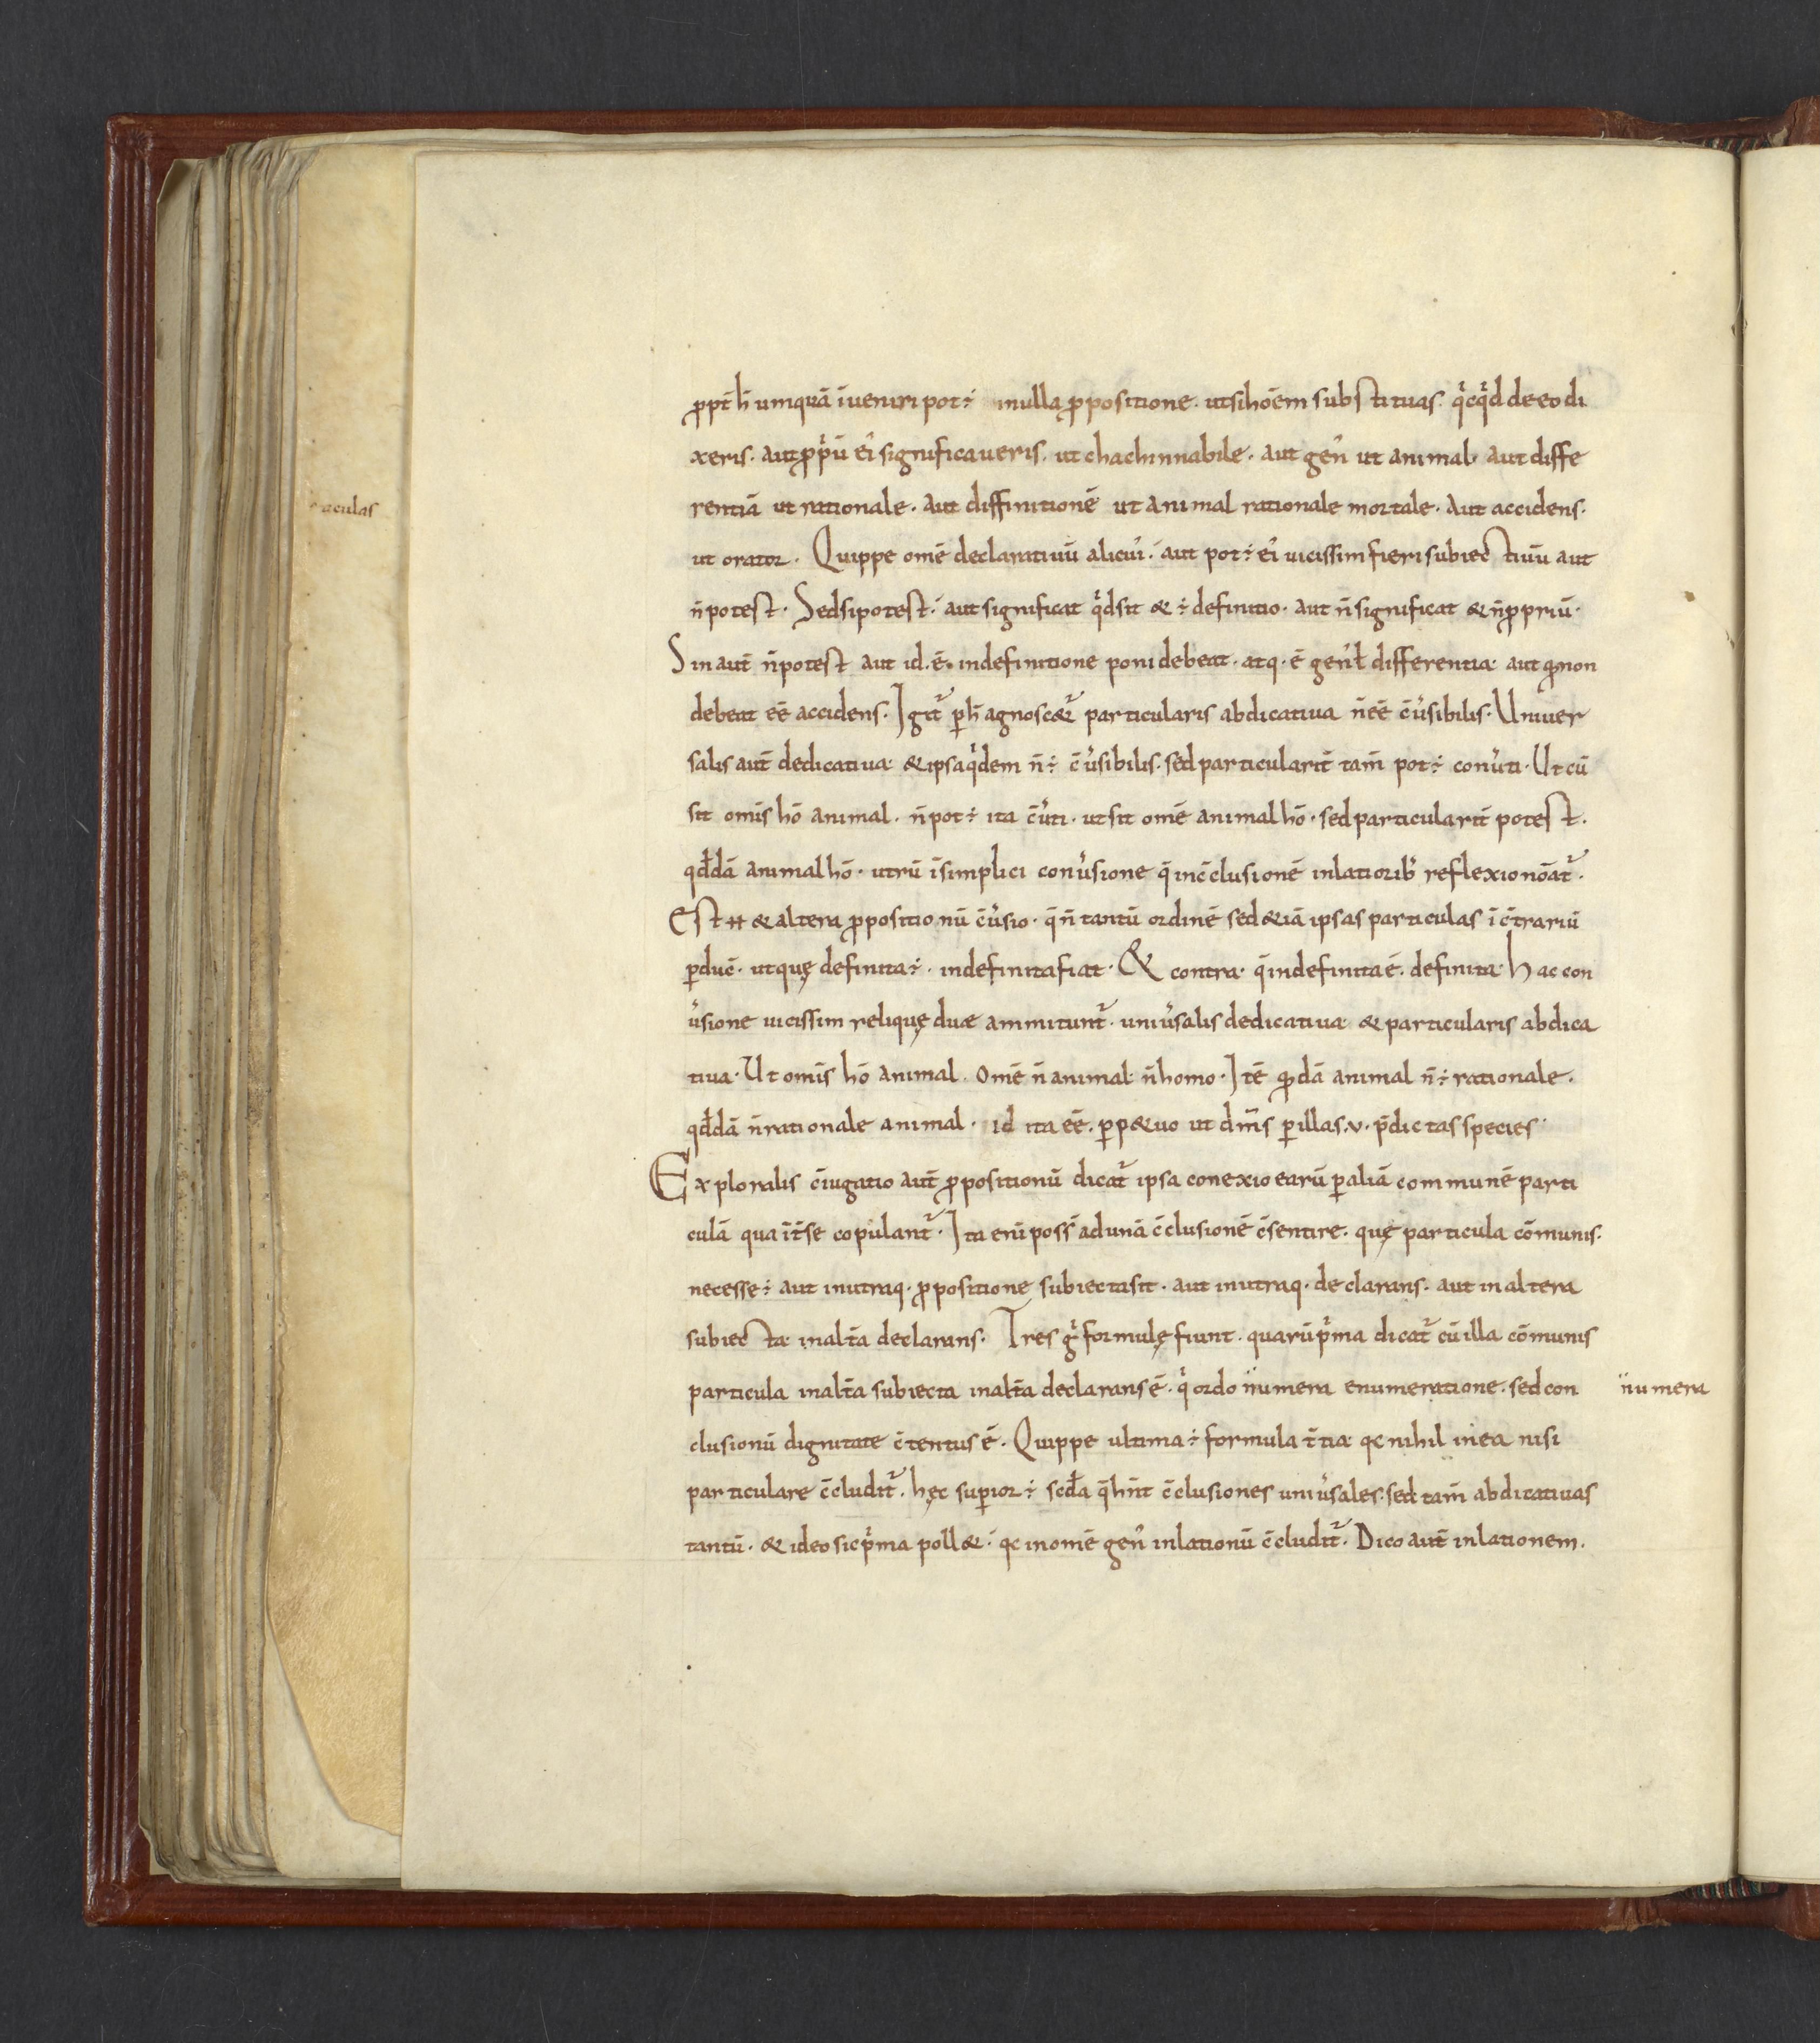 ꝓpt̄ h̄ umquā īueniri pot÷ innulla ꝓpositione. ut si hōem substituas. qͥcqͥd de eo di
xeris. aut ꝓpͥū eiꝰ significaueris. ut chachinnabile. aut genꝰ ut animal. aut diffe
rentiā ut rationale. aut diffinitionē ut animal rationale mortale. aut accidens.
ut orator. Quippe omē declaratiuū alicuiꝰ. aut pot÷ eiꝰ uicissim fieri subiectiuū aut
n̄ potest. Sed si potest. aut significat qͥd sit & ÷ definitio. aut n̄ significat & n̄ ꝓpriū.
Sin aut̄ n̄ potest aut id.ē. in definitione poni debeat. atq. ē genꝰ ł differentia aut qͦ non
debeat eē accidens. Igit̄ᷣ ꝑ h̄ agnosc&ᷣ particularis abdicatiua n̄ eē c̄uͥsibilis. Uniuer
salis aut̄ dedicatiua & ipsa qͥdem n̄ ÷ c̄uͥsibilis. sed particularit̄ tam̄ pot÷ conuͥti. Ut cū
sit omīs hō animal. n̄ pot÷ ita c̄uͥti. ut sit omē animal hō. sed particularit̄ potest.
qđdā animal hō. utrū ī simplici conuͥsione q̄ in c̄clusionē inlatioribꝰ reflexio nōat̄ᷣ.
Est ħ & altera ꝓpositionū c̄uͥsio. q̄ n̄ tantū ordinē sed &iā ipsas particulas ī c̄trariū
ꝑduc̄. ut quę definita ÷. indefinita fiat. & contra. q̄ indefinita ē. definita. Hac con
uͥsione uicissim reliquę duæ ammitunt̄ᷣ. uniuͥsalis dedicatiua & particularis abdica
tiua. Ut omīs hō animal. Omē n̄ animal n̄ homo. Itē qͦdā animal n̄ ÷ rationale.
qđdā n̄ rationale animal. id ita eē. ꝑp&uo ut dīn̄s ꝑ illas.v. p̄dictas species
Exploralis c̄iugatio aut̄ ꝓpositionū dicat̄ᷣ ipsa conexio earū ꝑ aliā communē parti
culā qua īt̄ se copulant̄ᷣ. Ita enī poss̄ ad unā c̄clusionē c̄sentire. quę particula cōmunis.
necesse ÷ aut in utraq. ꝓpositione subiecta sit. aut in utraq. declarans. aut in altera
subiecta in alt̄a declarans. Tres gͥ formulę fiunt. quarū pͥma dicat̄ᷣ cū illa cōmunis
particula in alt̄a subiecta in alt̄a declarans ē. qͥ ordo n̈ umera enumeratione. sed con
n̈ umera
clusionū dignitate c̄tentus ē. Quippe ultima ÷ formula t̄tia qc nihil in ea nisi
particulare c̄cludit̄ᷣ. hęc suꝑior ÷ scđa q̄ hn̄t c̄clusiones uniuͥsales. sed tam̄ abdicatiuas
tantū. & ideo sic pͥma poll&. qc in omē genꝰ inlationū c̄cludit̄ᷣ. Dico aut̄ inlationem.